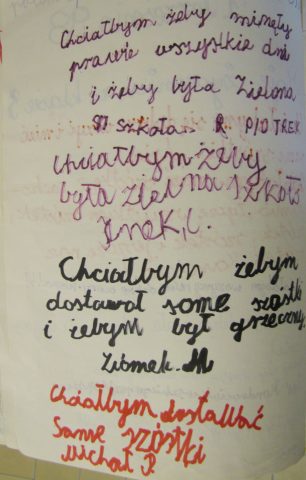 Chciałbym żeby minęły
prawie wszystkie dni
i żeby była Zielona
szkoła R. PIOTREK
Chciałbym żeby
była zielna szkoła
Chciałbym żebym
dostawał some szóstki
i żebym był grzeczny
M
Chciałbym dostawać
Same szóstki
Michał P.